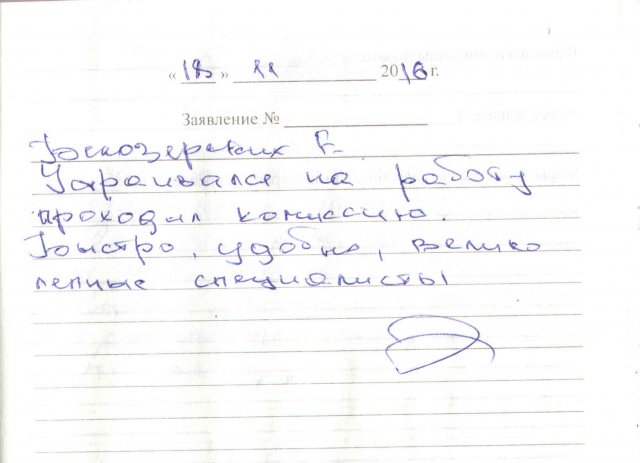 « 18 » 11 2016 г.
Заявление №
Белозерских Е.
Устраивался на работу
проходил комиссию.
Быстро, удобно, велико
лепные специалисты